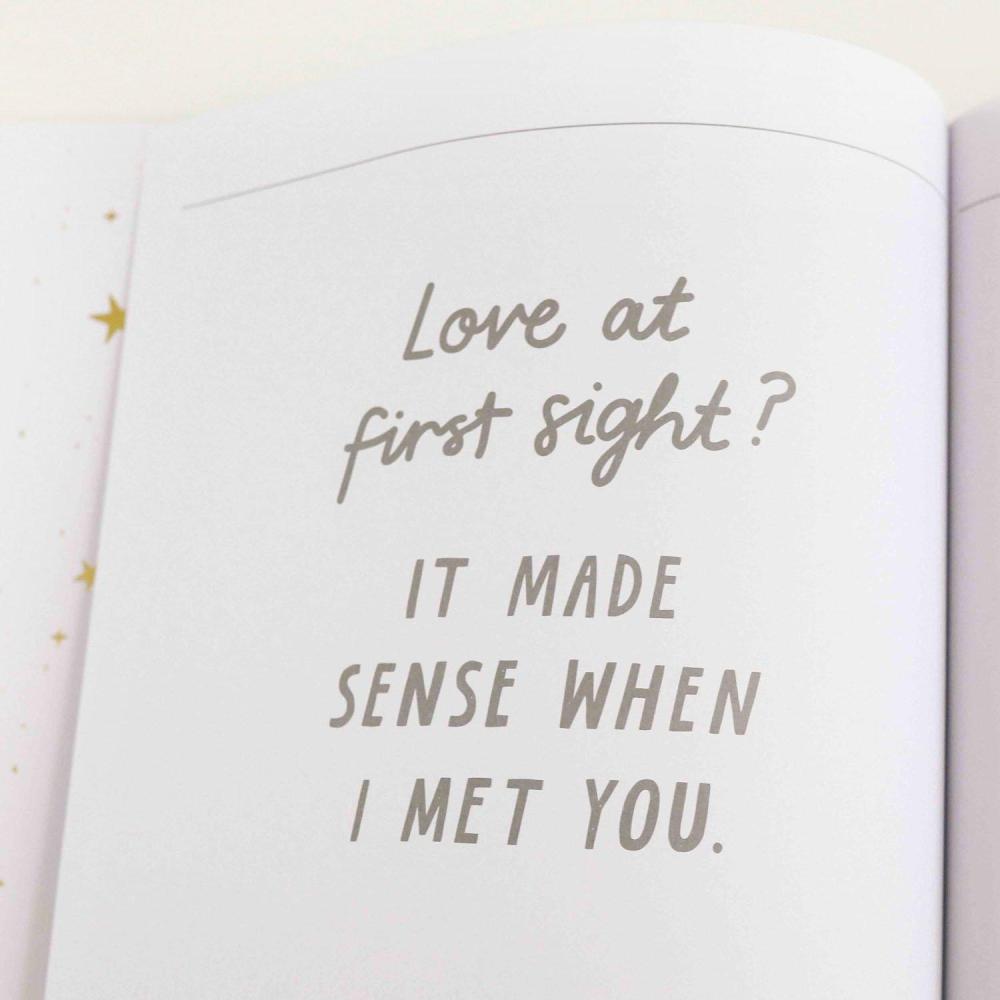 Love at
first sight?
IT MADE
SENSE WHEN
I MET YOU.